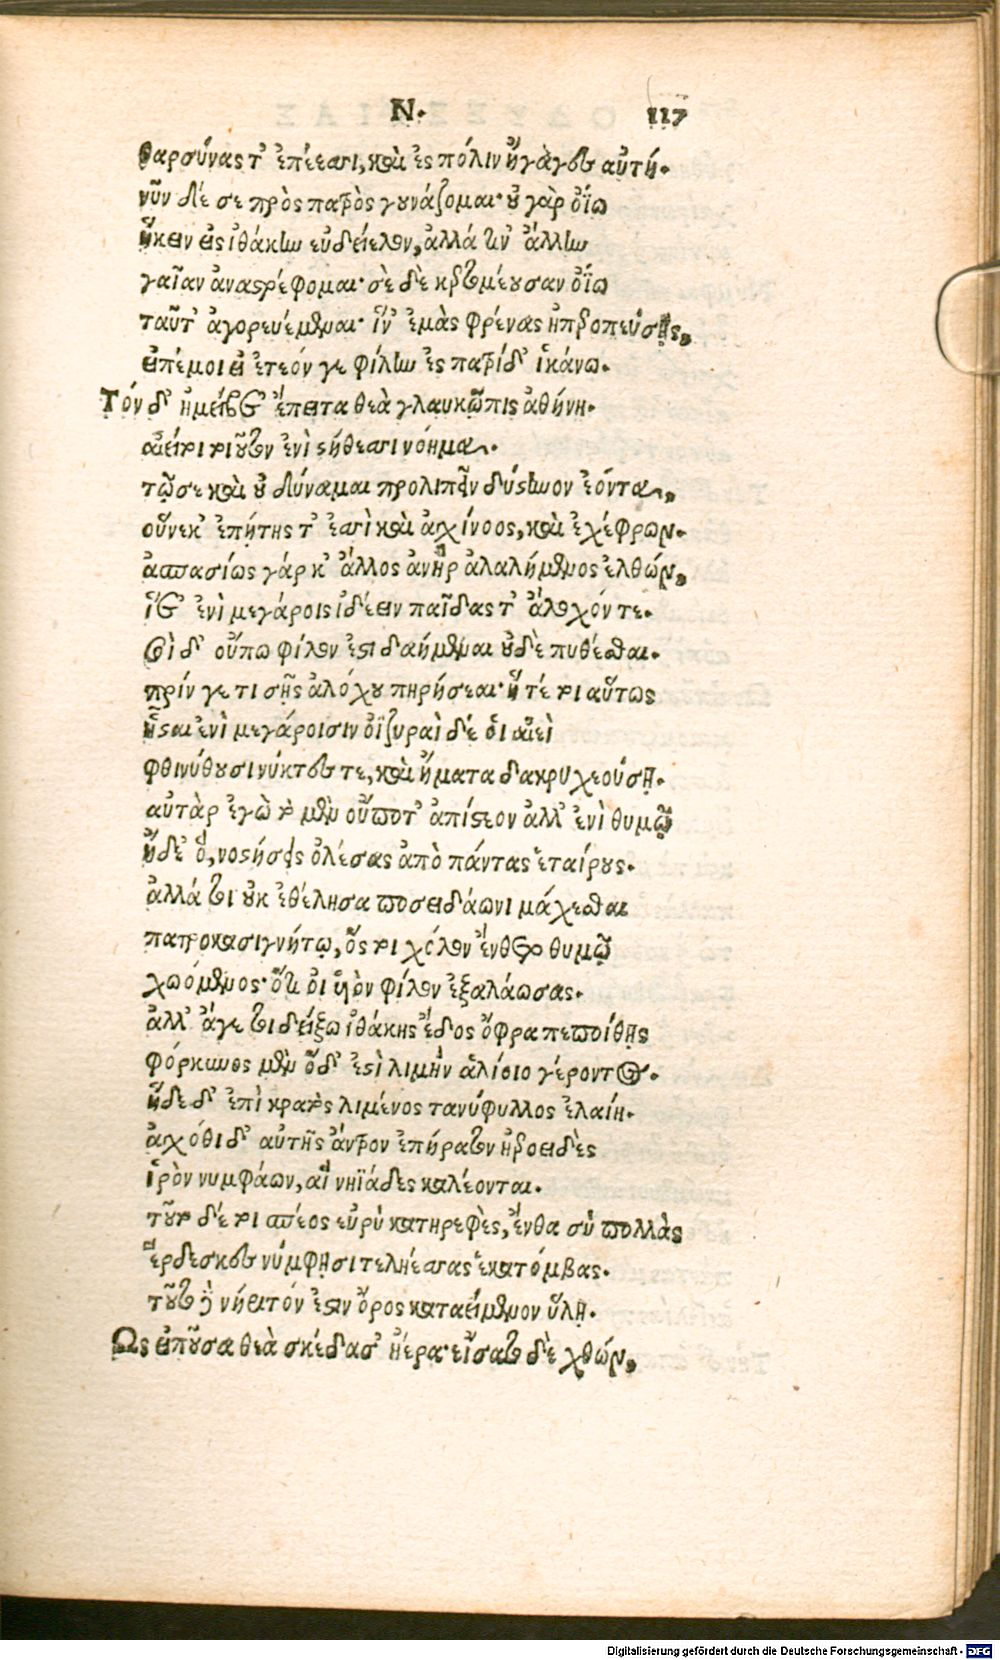 Ν. 117
θαρσύνας τ' ἐπέεσσι, καὶ ἐς πόλιν ἤγαγες αὐτή.
νῦν δέ σε πρὸς πατρὸς γουνάζομαι· οὐ γὰρ ὀΐω
ἥκειν εἰς ἰθάκην εὐδείελον, ἀλλά τιν' ἄλλην
γαῖαν ἀναστρέφομαι· σὲ δὲ κερτομέουσαν ὀΐω
ταῦτ' ἀγορευέμεναι· ἵν' ἐμὰς φρένας ἠπεροπεύσῃς,
εἰπέ μοι εἰ ἐτεόν γε φίλην ἐς πατρίδ' ἱκάνω.
Τόν δ' ἠμείβετ' ἔπειτα θεὰ γλαυκῶπις ἀθήνη.
αἰεί τοι τοιοῦτον ἐνὶ στήθεσσι νόημα.
τῷ σε καὶ οὐ δύναμαι προλιπεῖν δύστηνον ἐόντα,
οὕνεκ' ἐπητής τ' ἐσσὶ καὶ ἀγχίνοος, καὶ ἐχέφρων.
ἀσπασίως γάρ κ' ἄλλος ἀνὴρ ἀλαλήμενος ἐλθών,
ἵετ' ἐνὶ μεγάροις ἰδέειν παῖδας τ' ἄλοχόν τε.
σοὶ δ' οὔπω φίλον ἐστὶ δαήμεναι οὐδὲ πυθέσθαι.
πρίν γέ τι σῆς ἀλόχου πειρήσεαι· ἥ τέ τοι αὔτως
ἧσται ἐνὶ μεγάροισιν ὀϊζυραὶ δέ οἱ αἰεὶ
φθινύθουσι νύκτες τε, καὶ ἤματα δακρυχεούσῃ.
αὐτὰρ ἐγὼ τὸ μὲν οὔποτ' ἀπίστεον ἀλλ' ἐνὶ θυμῷ
ᾔδε' ὅ, νοστήσεις ὀλέσας ἀπὸ πάντας ἑταίρους.
ἀλλά τοι οὐκ ἐθέλησα ποσειδάωνι μάχεσθαι
πατροκασιγνήτῳ, ὅς τοι χόλον ἔνθετο θυμῷ
χωόμενος· ὅτι οἱ υἱὸν φίλον ἐξαλάωσας.
ἀλλ' ἄγε τοι δείξω ἰθάκης ἕδος ὄφρα πεποίθῃς
φόρκυνος μὲν ὅδ' ἐστὶ λιμὴν ἁλίοιο γέροντος.
ἥδε δ' ἐπὶ κρατὸς λιμένος τανύφυλλος ἐλαίη.
ἀγχόθι δ' αὐτῆς ἄντρον ἐπήρατον ἠεροειδὲς
ἱρὸν νυμφάων, αἳ νηϊάδες καλέονται.
τοῦτο δέ τοι σπέος εὐρὺ κατηρεφὲς, ἔνθα σὺ πολλὰς
ἔρδεσκες νύμφῃσι τεληέσσας ἑκατόμβας.
τοῦτο δὲ νήριτόν ἐστιν ὄρος καταειμένον ὕλῃ.
Ὣς εἰποῦσα θεὰ σκέδασ' ἠέρα· εἴσατο δὲ χθών,
Digitalisierung gefördert durch die Deutsche Forschungsgemeinschaft - DFG